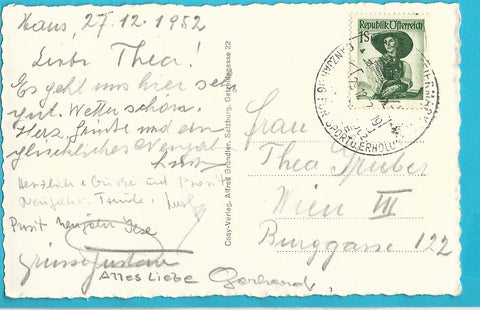 Haus, 27.12.1952
Liebe Thea!
Es geht uns hier sehr
gut. Wetter schön.
Herz. Grüße und ein
glückliches Neujahr
Herzliche Grüße und Prosit
Neujahr. Trude
Prosit Neujahr Ilse
Grüsse Gustav
Alles Liebe Gerhard
Cosy-Verlag, Alfred Gründler, Salzburg, Getreidegasse 22
Republik Österreich
1S
Frau
Thea Gruber
Wien
Burggasse 122